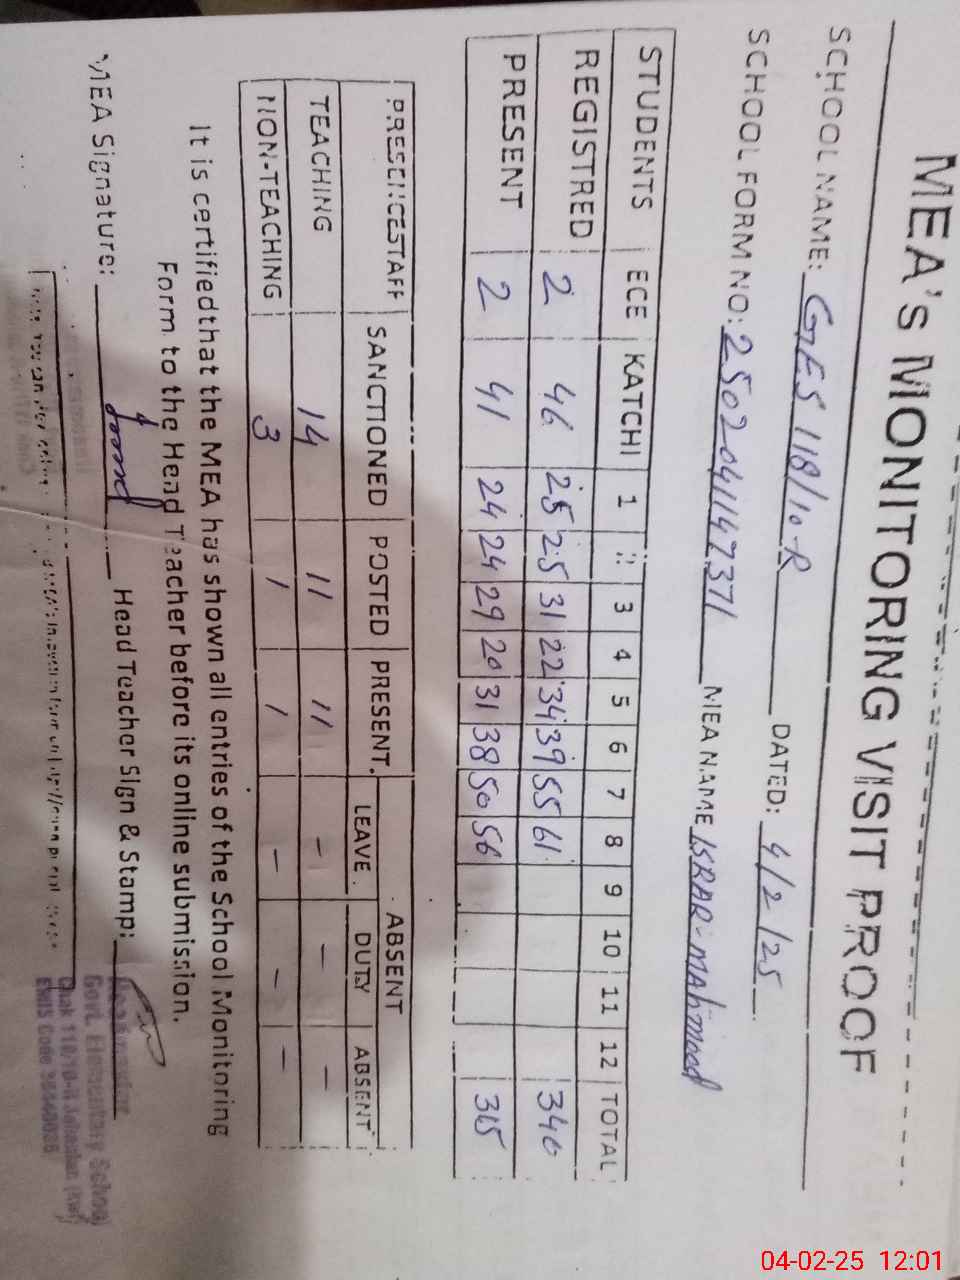 MEA's MONITORING VISIT PROOF
SCHOOL NAME: GES 118/10-R DATED: 4/2/25
SCHOOL FORM NO: 2502041147371 MEA NAME ISRAR-MAHmood
STUDENTS ECE KATCHI 1 3 4 5 6 7 8 9 10 11 12 TOTAL
REGISTRED 2 46 25 25 31 22 34 39 55 61 340
PRESENT 2 41 24 24 29 20 31 38 50 56 315
PRESENCESTAFF SANCTIONED POSTED PRESENT ABSENT
LEAVE DUTY ABSENT
TEACHING 14 11 11 - - -
NON-TEACHING 3 1 1 - - -
It is certified that the MEA has shown all entries of the School Monitoring
Form to the Head Teacher before its online submission.
MEA Signature: Head Teacher Sign & Stamp:
Headmaster
Govt. Elementary School
Chak 118/10-R
EMIS Code
04-02-25 12:01